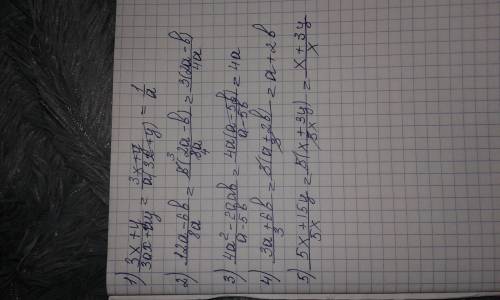 1) (3x+y)/(3ax+ay) = (3x+y)/(a(3x+y)) = 1/a
2) (12a-6b)/(8a) = (6(2a-b))/(8a) = (3(2a-b))/(4a)
3) (4a²-20ab)/(a-5b) = (4a(a-5b))/(a-5b) = 4a
4) (3a+6b)/3 = (3(a+2b))/3 = a+2b
5) (5x+15y)/(5x) = (5(x+3y))/(5x) = (x+3y)/x